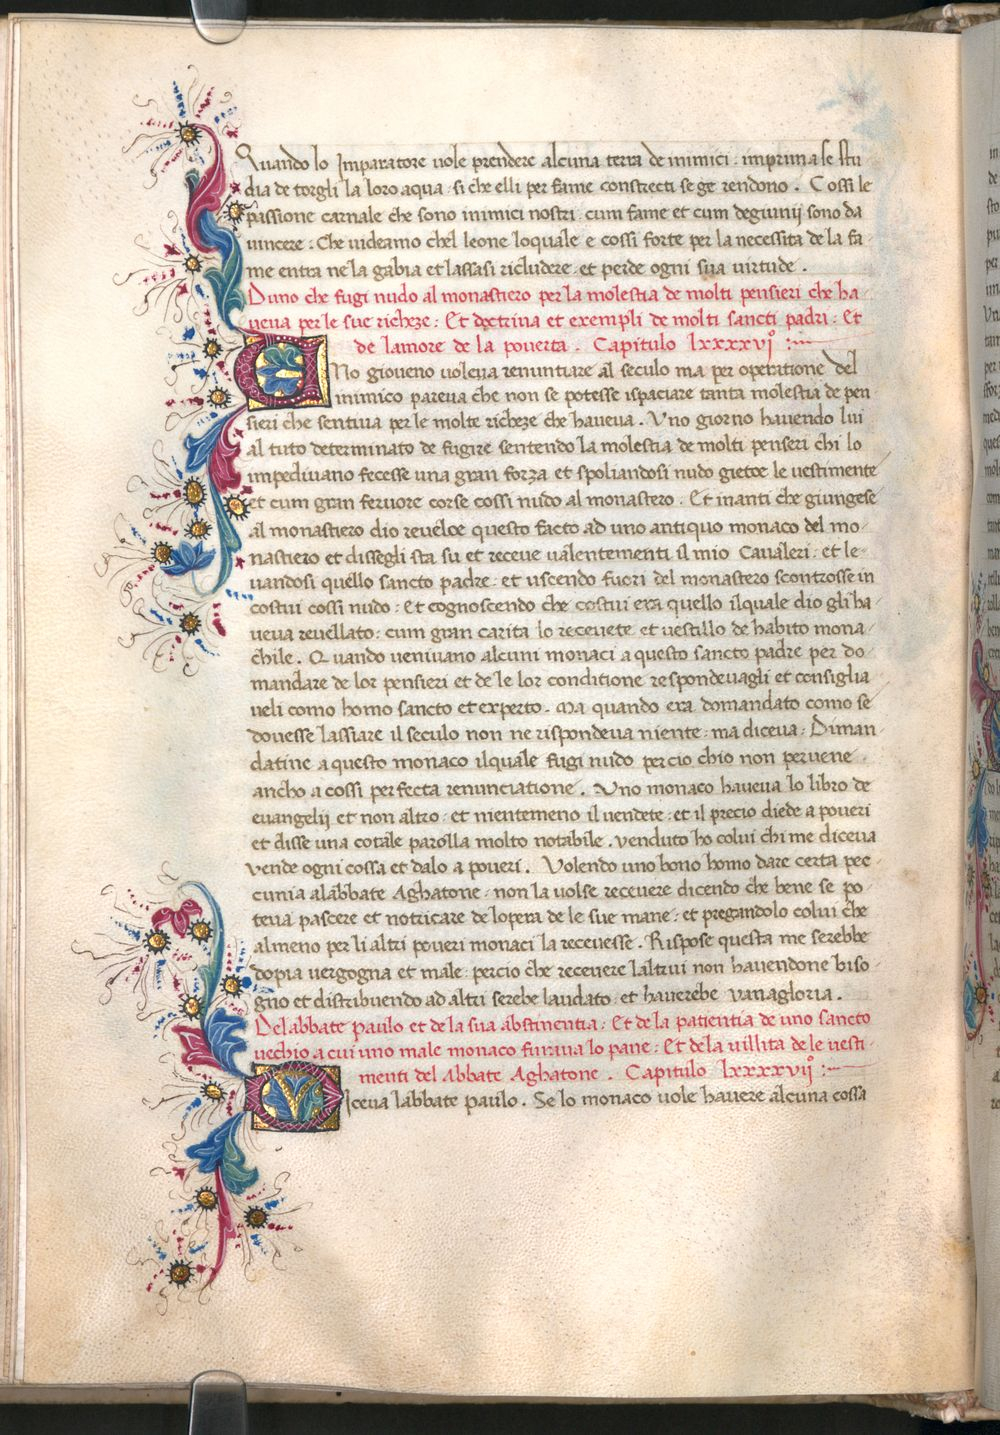 Quando lo Imparatore uole prendere alcuna terra de inimici : impruna se stu
dia de torgli la loro aqua : si che elli per fame constrecti se ge rendono . Cossi le
passione carnale che sono inimici nostri : cum fame et cum degiunij sono da
uincere : Che uideamo chel leone loquale e cossi forte per la necessita de la fa
me entra ne la gabia et lassasi richudere : et perde ogni sua uirtude .
Duno che fugi nudo al monastiero per la molestia de molti pensieri che ha
ueua per le sue richeze : Et doctrina et exempli de molti sancti padri : Et
de lamore de la pouerta . Capitulo lxxxxvjº :
UNo gioueno uoleua renuntiare al seculo ma per operatione del
inimico pareua che non se potesse ispaciare tanta molestia de pen
sieri che sentiua per le molte richeze che haueua . Uno giorno hauendo lui
al tuto determinato de fugire sentendo la molestia de molti penseri chi lo
impediuano fecesse una gran forza et spoliandosi nudo gietoe le uestimente
et cum gran feruore corse cossi nudo al monastero . Et inanti che giungese
al monastiero dio reueloe questo facto ad uno antiquo monaco del mo
nastiero et dissegli sta su et receue ualentementi il mio Caualeri : et le
uandosi quello sancto padre : et uscendo fuori del monastero scontrosse in
costui cossi nudo : Et cognoscendo che costui era quello ilquale dio gli ha
ueua reuellato : cum gran carita lo receuete et uestillo de habito mona
chile . Quando ueniuano alcuni monaci a questo sancto padre per do
mandare de lor pensieri et de le lor conditione respondeuagli et consiglia
ueli como homo sancto et experto . Ma quando era domandato como se
douesse lassiare il seculo non ne rispondeua niente : ma diceua : Diman
datine a questo monaco ilquale fugi nudo percio chio non peruene
ancho a cossi perfecta renunciatione . Uno monaco haueua lo libro de
euangelij et non altro : et nientemeno il uendete : et il precio diede a poueri
et disse una cotale parolla molto notabile . uenduto ho colui chi me diceua
vende ogni cossa et dalo a poueri . Volendo uno bono homo dare certa pec
cunia alabbate Aghatone : non la uolse receuere dicendo che bene se po
teua pascere et notricare de lopera de le sue mane : et pregandolo colui che
almeno per li altri poueri monaci la receuesse . Rispose questa me serebbe
dopia uergogna et male : percio che receuere laltrui non hauendone biso
gno et distribuendo ad altri serebe laudato : et hauerebe vanagloria .
Del abbate paulo et de la sua abstinentia : Et de la patientia de uno sancto
uechio a cui uno male monaco furaua lo pane : Et dela uillita de le uesti
menti del Abbate Aghatone . Capitulo lxxxxvijº :
Diceua labbate paulo . Se lo monaco uole hauere alcuna cossa